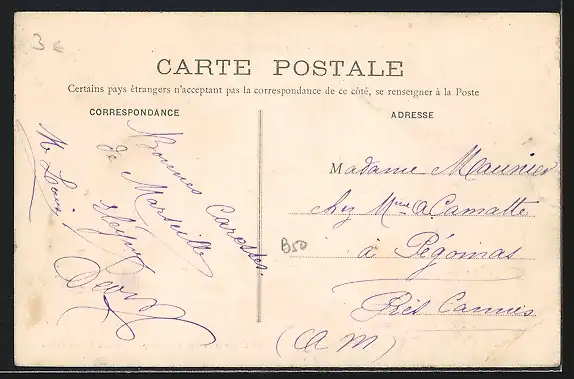 3 €
CARTE POSTALE
Certains pays étrangers n'acceptant pas la correspondance de ce côté, se renseigner à la Poste
CORRESPONDANCE
Bonnes Caresses
de Marseille
ADRESSE
Madame Maunier
chez Mme A Camatte
à Pégomas
Près Cannes
(A M)
B50